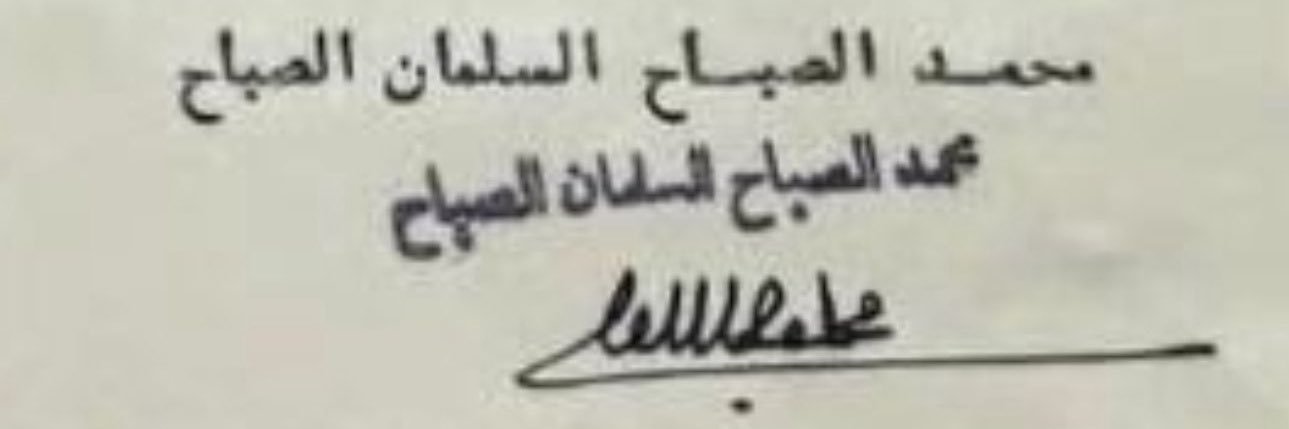 محمد الصباح السلمان الصباح
محمد الصباح السلمان الصباح